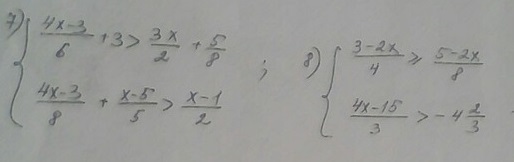 7) { (4x-3)/6 + 3 > 3x/2 + 5/8
(4x-3)/8 + (x-5)/5 > (x-1)/2 ;
8) { (3-2x)/4 ⩾ (5-2x)/8
(4x-15)/3 > -4 2/3